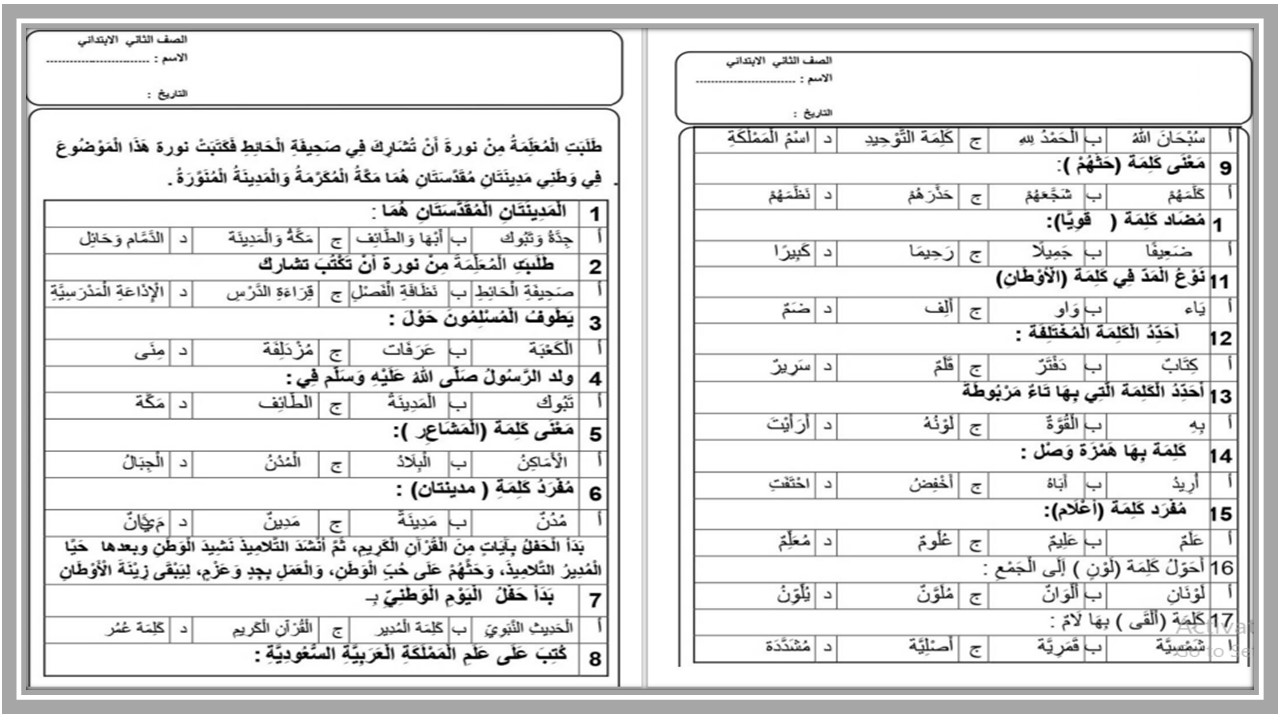 الصف الثاني الابتدائي
الاسم : ----------------------------
التاريخ :
طَلَبَتِ الْمُعَلِّمَةُ مِنْ نورةَ أَنْ تُشَارِكَ فِي صَحِيفَةِ الْحَائِطِ فَكَتَبَتْ نورة هَذَا الْمَوْضُوعَ
فِي وَطَنِي مَدِينَتَانِ مُقَدَّسَتَانِ هُمَا مَكَّةُ الْمُكَرَّمَةُ وَالْمَدِينَةُ الْمُنَوَّرَةُ .
1 الْمَدِينَتَانِ الْمُقَدَّسَتَانِ هُمَا :
أ جِدَّةُ وَتَبُوك ب أَبْهَا وَالطَّائِف ج مَكَّةُ وَالْمَدِينَة د الدَّمَّام وَحَائِل
2 طَلَبَتِ الْمُعَلِّمَةُ مِنْ نورة أَنْ تَكْتُبَ تشارك
أ صَحِيفَةِ الْحَائِطِ ب نَظَافَةِ الْفَصْلِ ج قِرَاءَةِ الدَّرْسِ د الْإِذَاعَةِ الْمَدْرَسِيَّةِ
3 يَطُوفُ الْمُسْلِمُونَ حَوْلَ :
أ الْكَعْبَة ب عَرَفَات ج مُزْدَلِفَة د مِنَى
4 ولد الرَّسُولُ صَلَّى اللهُ عَلَيْهِ وَسَلَّم فِي :
أ تَبُوك ب الْمَدِينَةُ ج الطَّائِف د مَكَّة
5 مَعْنَى كَلِمَة (الْمَشَاعِر ):
أ الْأَمَاكِنُ ب الْبِلَادُ ج الْمُدُنُ د الْجِبَالُ
6 مُفْرَدُ كَلِمَةِ ( مدينتان) :
أ مُدُنٌ ب مَدِينَةً ج مَدِينٌ د
بَدَأَ الْحَفْلُ بِآيَاتٍ مِنَ الْقُرْآنِ الْكَرِيمِ، ثُمَّ أَنْشَدَ التَّلَامِيذُ نَشِيدَ الْوَطَنِ وبعدها حَيَّا
الْمُدِيرُ التَّلَامِيذَ، وَحَثَّهُمْ عَلَى حُبِّ الْوَطَنِ، وَالْعَمَلِ بِجِدٍ وَعَزْمٍ، لِيَبْقَى زِينَةَ الْأَوْطَانِ
7 بَدَأَ حَفْلُ الْيَوْمِ الْوَطَنِيِّ بِـ
أ الْحَدِيثِ النَّبَوِيّ ب كَلِمَةِ الْمُدِير ج الْقُرْآنِ الْكَرِيمِ د كَلِمَة عُمُر
8 كُتِبَ عَلَى عَلَمِ الْمَمْلَكَةِ الْعَرَبِيَّةِ السَّعُودِيَّةِ :
الصف الثاني الابتدائي
الاسم : ---------------------------
التاريخ :
أ سُبْحَانَ اللهُ ب الْحَمْدُ لِلهِ ج كَلِمَة التَّوْحِيدِ د اسْمُ الْمَمْلَكَةِ
9 مَعْنَى كَلِمَة (حَثَّهُمْ ):
أ كَلَّمَهُمْ ب شَجَّعَهُمْ ج حَذَّرَهُمْ د نَظَّمَهُمْ
1 مُضَاد كَلِمَة ( قَوِيًّا):
أ ضَعِيفًا ب جَمِيلًا ج رَحِيمَا د كَبِيرًا
11 نَوْعُ الْمَدِّ فِي كَلِمَة (الْأَوْطَانِ)
أ يَاء ب وَاو ج أَلِف د ضَمٌ
12 أُحَدِّدُ الْكَلِمَة الْمُخْتَلِفَة :
أ كِتَابٌ ب دَفْتَرٌ ج قَلَمٌ د سَرِيرٌ
13 أُحَدِّدُ الْكَلِمَة الَّتِي بِهَا تَاءٌ مَرْبُوطَة
أ بِهِ ب الْقُوَّةُ ج لَوْنُهُ د أَرَأَيْتَ
14 كَلِمَة بِهَا هَمْزَة وَصْل :
أ أُرِيدُ ب أَبَاهُ ج أَخْفِضُ د احْتَفَتِ
15 مُفْرَد كَلِمَة (أَعْلَام):
أ عَلَمٌ ب عَلِيمٌ ج عُلُومٌ د مُعَلِّمٌ
16 أُحَوِّلُ كَلِمَة (لَوْنٍ ) إِلَى الْجَمْعِ :
أ لَوْنَانِ ب أَلْوَانٌ ج مُلَوَّنٌ د يُلَوِّنُ
17 كَلِمَة (أَلْقَى ) بِهَا لَامٌ :
أ شَمْسِيَّة ب قَمَرِيَّة ج أَصْلِيَّة د مُشَدَّدَة
Activat
Go to Se